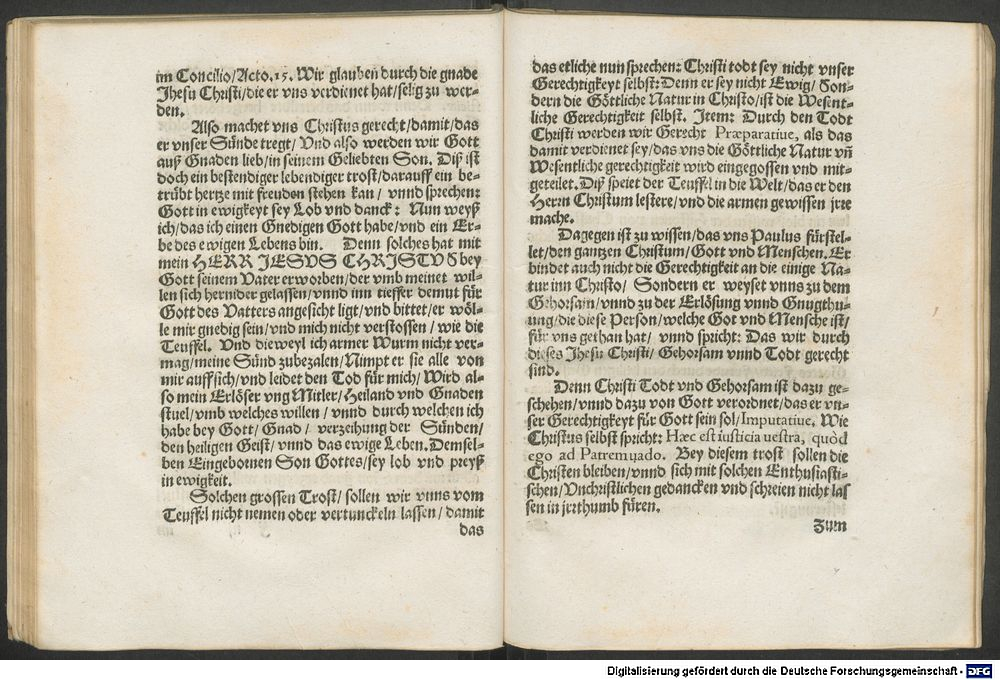 im Concilio/Acto.15. Wir glauben durch die gnade
Jhesu Christi/die er vns verdienet hat/selig zu wer-
den.
Also machet vns Christus gerecht/damit/das
er vnser Sünde tregt/Vnd also werden wir Gott
auß Gnaden lieb/in seinem Geliebten Son. Diß ist
doch ein bestendiger lebendiger trost/darauff ein be-
trübt hertze mit freuden stehen kan/ vnnd sprechen:
Gott in ewigkeyt sey Lob vnd danck: Nun weyß
ich/das ich einen Gnedigen Gott habe/vnd ein Er-
be des ewigen Lebens bin. Denn solches hat mit
mein HERR JESVS CHRISTVS bey
Gott seinem Vater erworben/der vmb meinet wil-
len sich hernider gelassen/vnnd inn tieffer demut für
Gott des Vatters angesicht ligt/vnd bittet/er wöl-
le mir gnedig sein/vnd mich nicht verstossen/ wie die
Teuffel. Vnd dieweyl ich armer Wurm nicht ver-
mag/meine Sünd zubezalen/Nimpt er sie alle von
mir auff sich/vnd leidet den Tod für mich/Wird al-
so mein Erlöser vng Mitler/Heiland vnd Gnaden
stuel/vmb welches willen/vnnd durch welchen ich
habe bey Gott/Gnad/ verzeihung der Sünden/
den heiligen Geist/vnnd das ewige Leben.Demsel-
ben Eingebornen Son Gottes/sey lob vnd preyß
in ewigkeit.
Solchen grossen Trost/sollen wir vnns vom
Teuffel nicht nemen oder vertunckeln lassen/damit
das
das etliche nun sprechen: Christi todt sey nicht vnser
Gerechtigkeyt selbst: Denn er sey nicht Ewig/ Son-
dern die Göttliche Natur in Christo/ist die Wesent-
liche Gerechtigkeit selbst. Item: Durch den Todt
Christi werden wir Gerecht Præparatiue, als das
damit verdienet sey/das vns die Göttliche Natur vñ
Wesentliche gerechtigkeit wird eingegossen vnd mit-
geteilet.Diß speiet der Teuffel in die Welt/das er den
Herrn Christum lestere/vnd die armen gewissen jrre
mache.
Dagegen ist zu wissen/das vns Paulus fürstel-
let/den gantzen Christum/Gott vnd Menschen. Er
bindet auch nicht die Gerechtigkeit an die einige Na-
tur inn Christo/ Sondern er weyset vnns zu dem
Gehorsam/vnnd zu der Erlösung vnnd Gnugthu-
ung/die diese Person/welche Got vnd Mensche ist/
für vns gethan hat/ vnnd spricht: Das wir durch
dieses Jhesu Christi/ Gehorsam vnnd Todt gerecht
sind.
Denn Christi Todt vnd Gehorsam ist dazu ge-
schehen/vnnd dazu von Gott verordnet/das er vn-
ser Gerechtigkeyt für Gott sein sol/Imputatiue. Wie
Christus selbst spricht: Hæc est iusticia uestra, quòd
ego ad Patrem uado. Bey diesem trost sollen die
Christen bleiben/vnnd sich mit solchen Enthusiasti-
schen/Vnchristlichen gedancken vnd schreien nicht las
sen in jrrthumb füren.
Zum
Digitalisierung gefördert durch die Deutsche Forschungsgemeinschaft - DFG